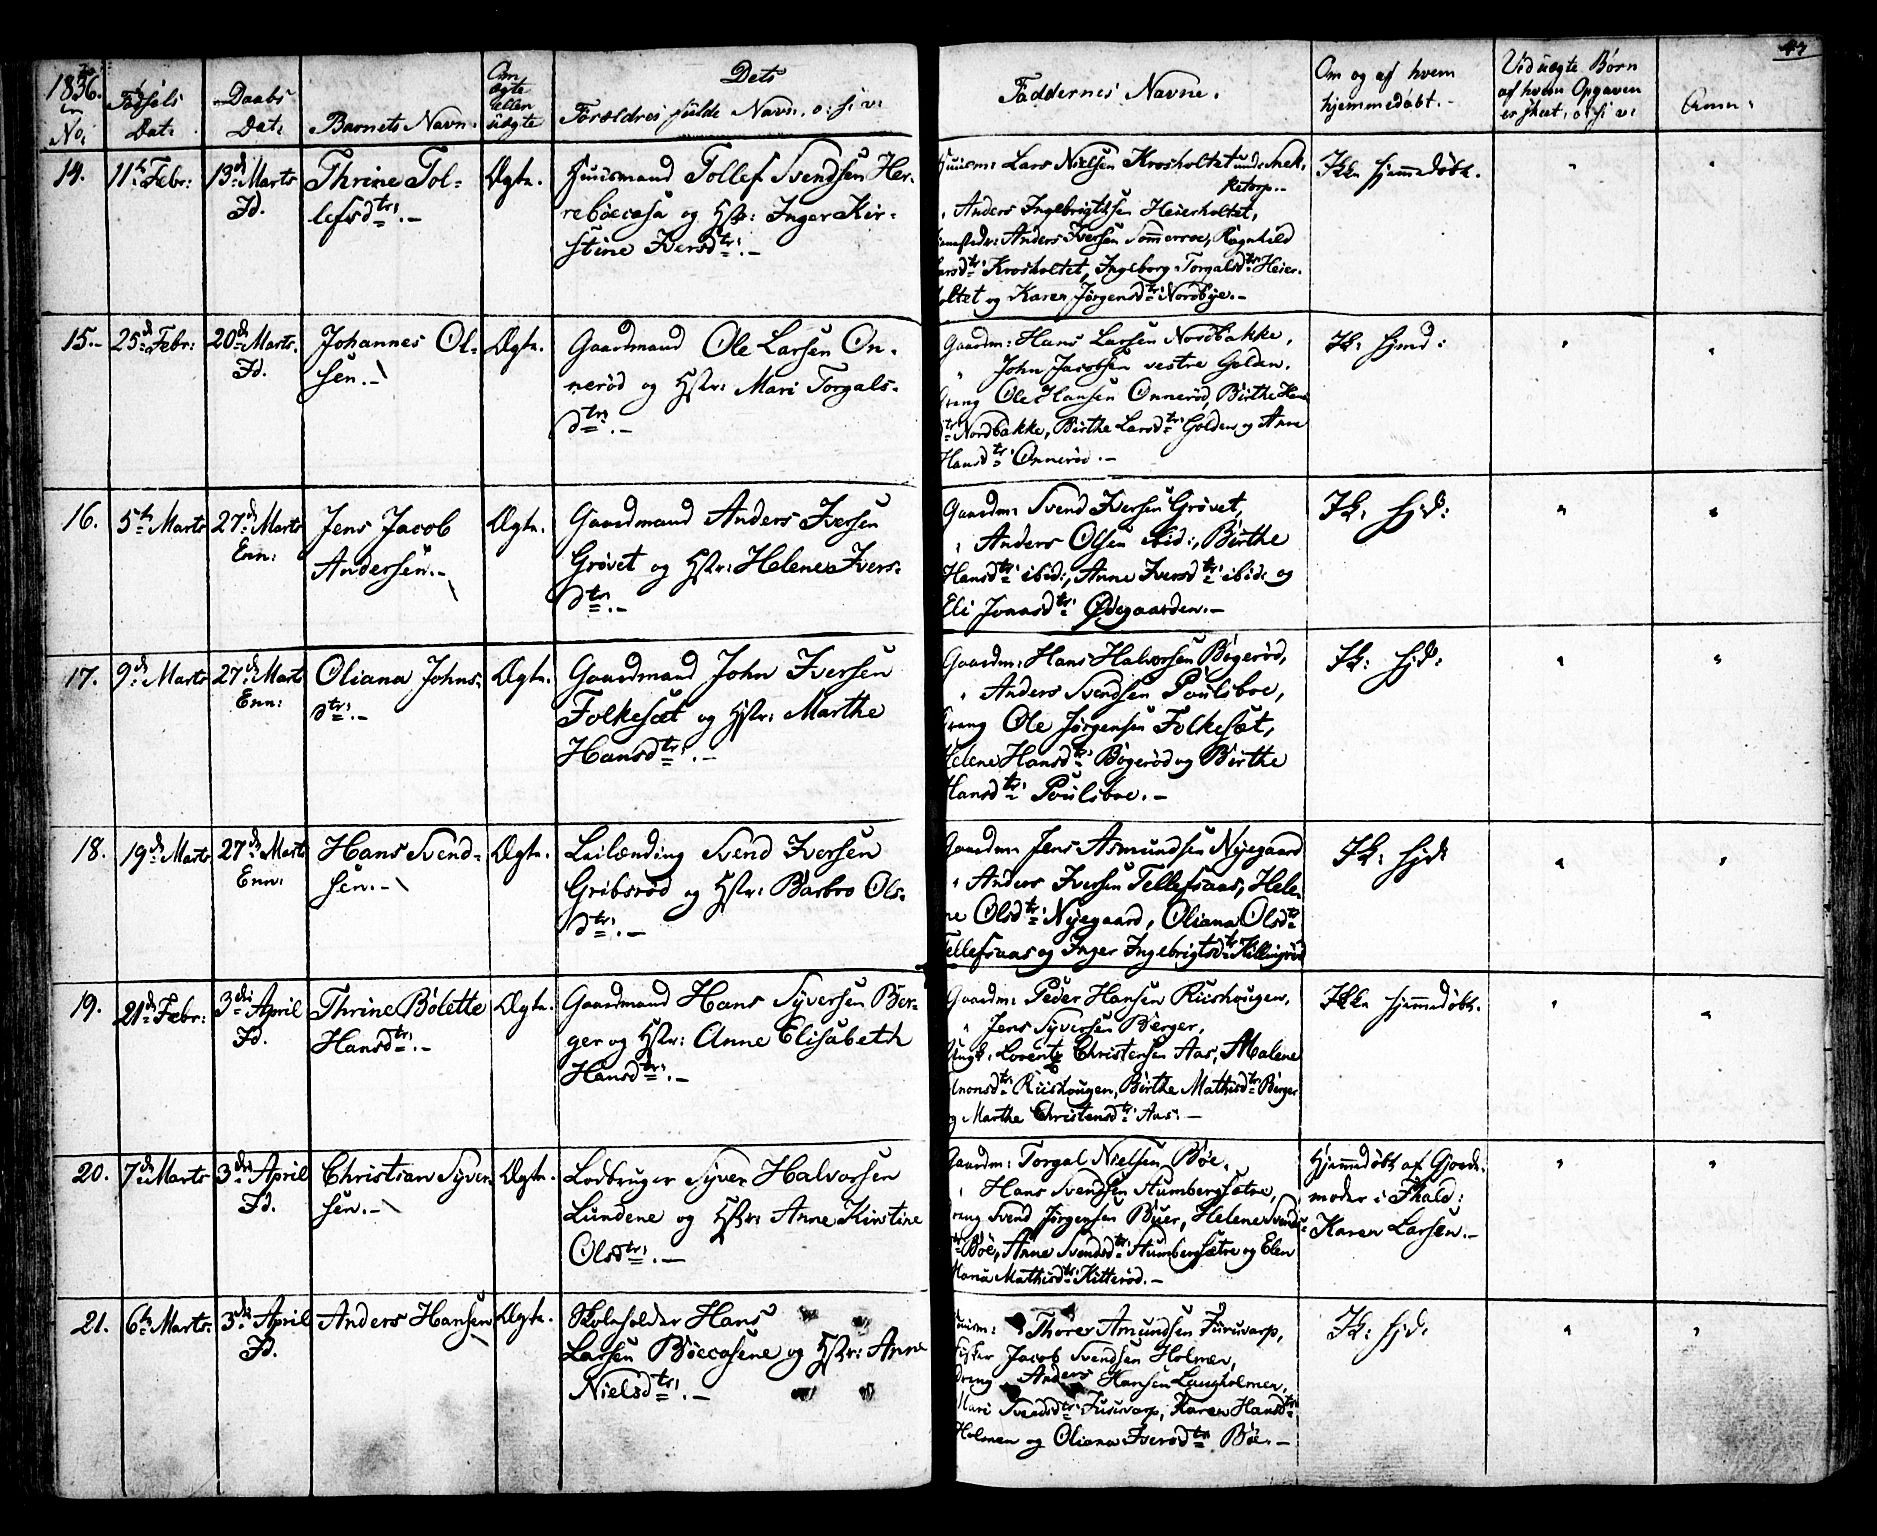 1836.
No:
Fødsels
Dat:
Daabs
Dat:
Barnets Navn.
Om
ægte
eller
uægte
Dets
Forældres fulde Navn. o: s: v:
Faddernes Navne.
Om og af hvem
hjemmedøbt.-
Ved uægte Børn
af hvem Opgaven
er skeet, o: s: v:
Anm:
14.
11te Febr:
13de Marts
Id.
Thrine Tol-
lefsdtr:.-
Ægte.
Huusmand Tollef Svendsen Her-
rebøecasa og Hstr: Inger Kir-
stine Iversdtr:.-
Huusm: Lars Nielsen Krosholtet under Snek-
ketorp.-
" Anders Ingebrigtsen Heierholtet,
Anders Iversen Sommerroe, Ragnhild
Larsdtr: Krosholtet, Ingeborg Torgalsdtr: Heier-
holtet og Karen Jørgensdtr: Nordbye.-
Ikke hjemmedøbt.
"
"
15.-
25de Febr:
20de Marts.
Id.
Johannes Ol-
sen.-
Ægte.
Gaardmand Ole Larsen On-
nerød og Hstr: Mari Torgals-
dtr:.-
Gaardm: Hans Larsen Nordbakke,
" John Jacobsen vestre Golden.
Dreng Ole Hansen Onnerød, Birthe Hans
dtr: Nordbakke, Birthe Larsdtr: Golden og Anne
Hansdtr: Onnerød.-
Ik: hjmd:
"
"
16.
5te Marts
27de Marts
Enn:
Jens Jacob
Andersen.-
Ægte.
Gaardmand Anders Iversen
Grøvet og Hstr: Helene Ivers-
dtr:.-
Gaardm: Svend Iversen Grøvet,
" Anders Olsen ibid:, Birthe
Hansdtr: ibid:, Anne Iversdtr: ibid: og
Eli Jonasdtr: Ødegaarden.-
Ik: hjd:
"
"
17.
9de Marts
27de Marts
Enn:
Oliana Johns-
dtr:.-
Ægte.
Gaardmand John Iversen
Folkesæt og Hstr: Marthe
Hansdtr:.-
Gaardm: Hans Halvorsen Bøgerød,
" Anders Svendsen Poulsboe,
Dreng Ole Jørgensen Folkesæt,
Helene Hansdtr: Bøgerød og Birthe
Hansdtr: Poulsboe.-
Ik: hjd:
"
"
18.
19de Marts
27de Marts
Enn:
Hans Svend-
sen.-
Ægte.
Leilænding Svend Iversen
Gribsrød og Hstr: Barbro Ols-
dtr:.-
Gaardm: Jens Asmundsen Nyegaard
" Anders Iversen Tellefsaas, Hele-
ne Olsdtr: Nyegaard, Oliana Olsdtr:
Tellefsaas og Inger Ingebrigtsdtr: Killingrød
Ik: hjd:
"
"
19.
21de Febr:
3die April
Id.
Thrine Bolette
Hansdtr:.-
Ægte.
Gaardmand Hans Syversen Ber-
ger og Hstr: Anne Elisabeth
Hansdtr:.-
Gaardm: Peder Hansen Riishougen,
" Jens Syversen Berger,
Ungk: Lorentz Christensen Aas, Malene
Riishougen, Birthe Mathisdtr: Berger
og Marthe Christensdtr: Aas.-
Ikke hjemmedøbt.
"
"
20.
7de Marts
3die April
Id.
Christian Syver-
sen.-
Ægte.
Lodbruger Syver Halvorsen
Lundene og Hstr: Anne Kirstine
Olsdtr:.-
Gaardm: Torgal Nielsen Bøe,
" Hans Svendsen Humbergsætre,
Dreng Svend Jørgensen Buer, Helene Svends-
dtr: Bøe, Anne Svendsdtr: Humbergsætre og Elen
Maria Mathisdtr: Kitterød.-
Hjemmedøbt af Gjorde-
moder i Fhald:
Karen Larsen.-
"
"
21.
6te Marts.
3die April
Id.
Anders Hansen
Ægte.
Skoleholder Hans
Larsen Bøecasene og Hstr: Anne
Nielsdtr:.-
Huusm: Thorer Amundsen Furuvarp,
Fisker Jacob Svendsen Holmen,
Dreng Anders Hansen Langholmen,
Mari Svendsdtr: Furuvarp, Karen Hansdtr:
Holmen og Oliana Iversdtr: Bøe.-
Ik: hjd:
"
"